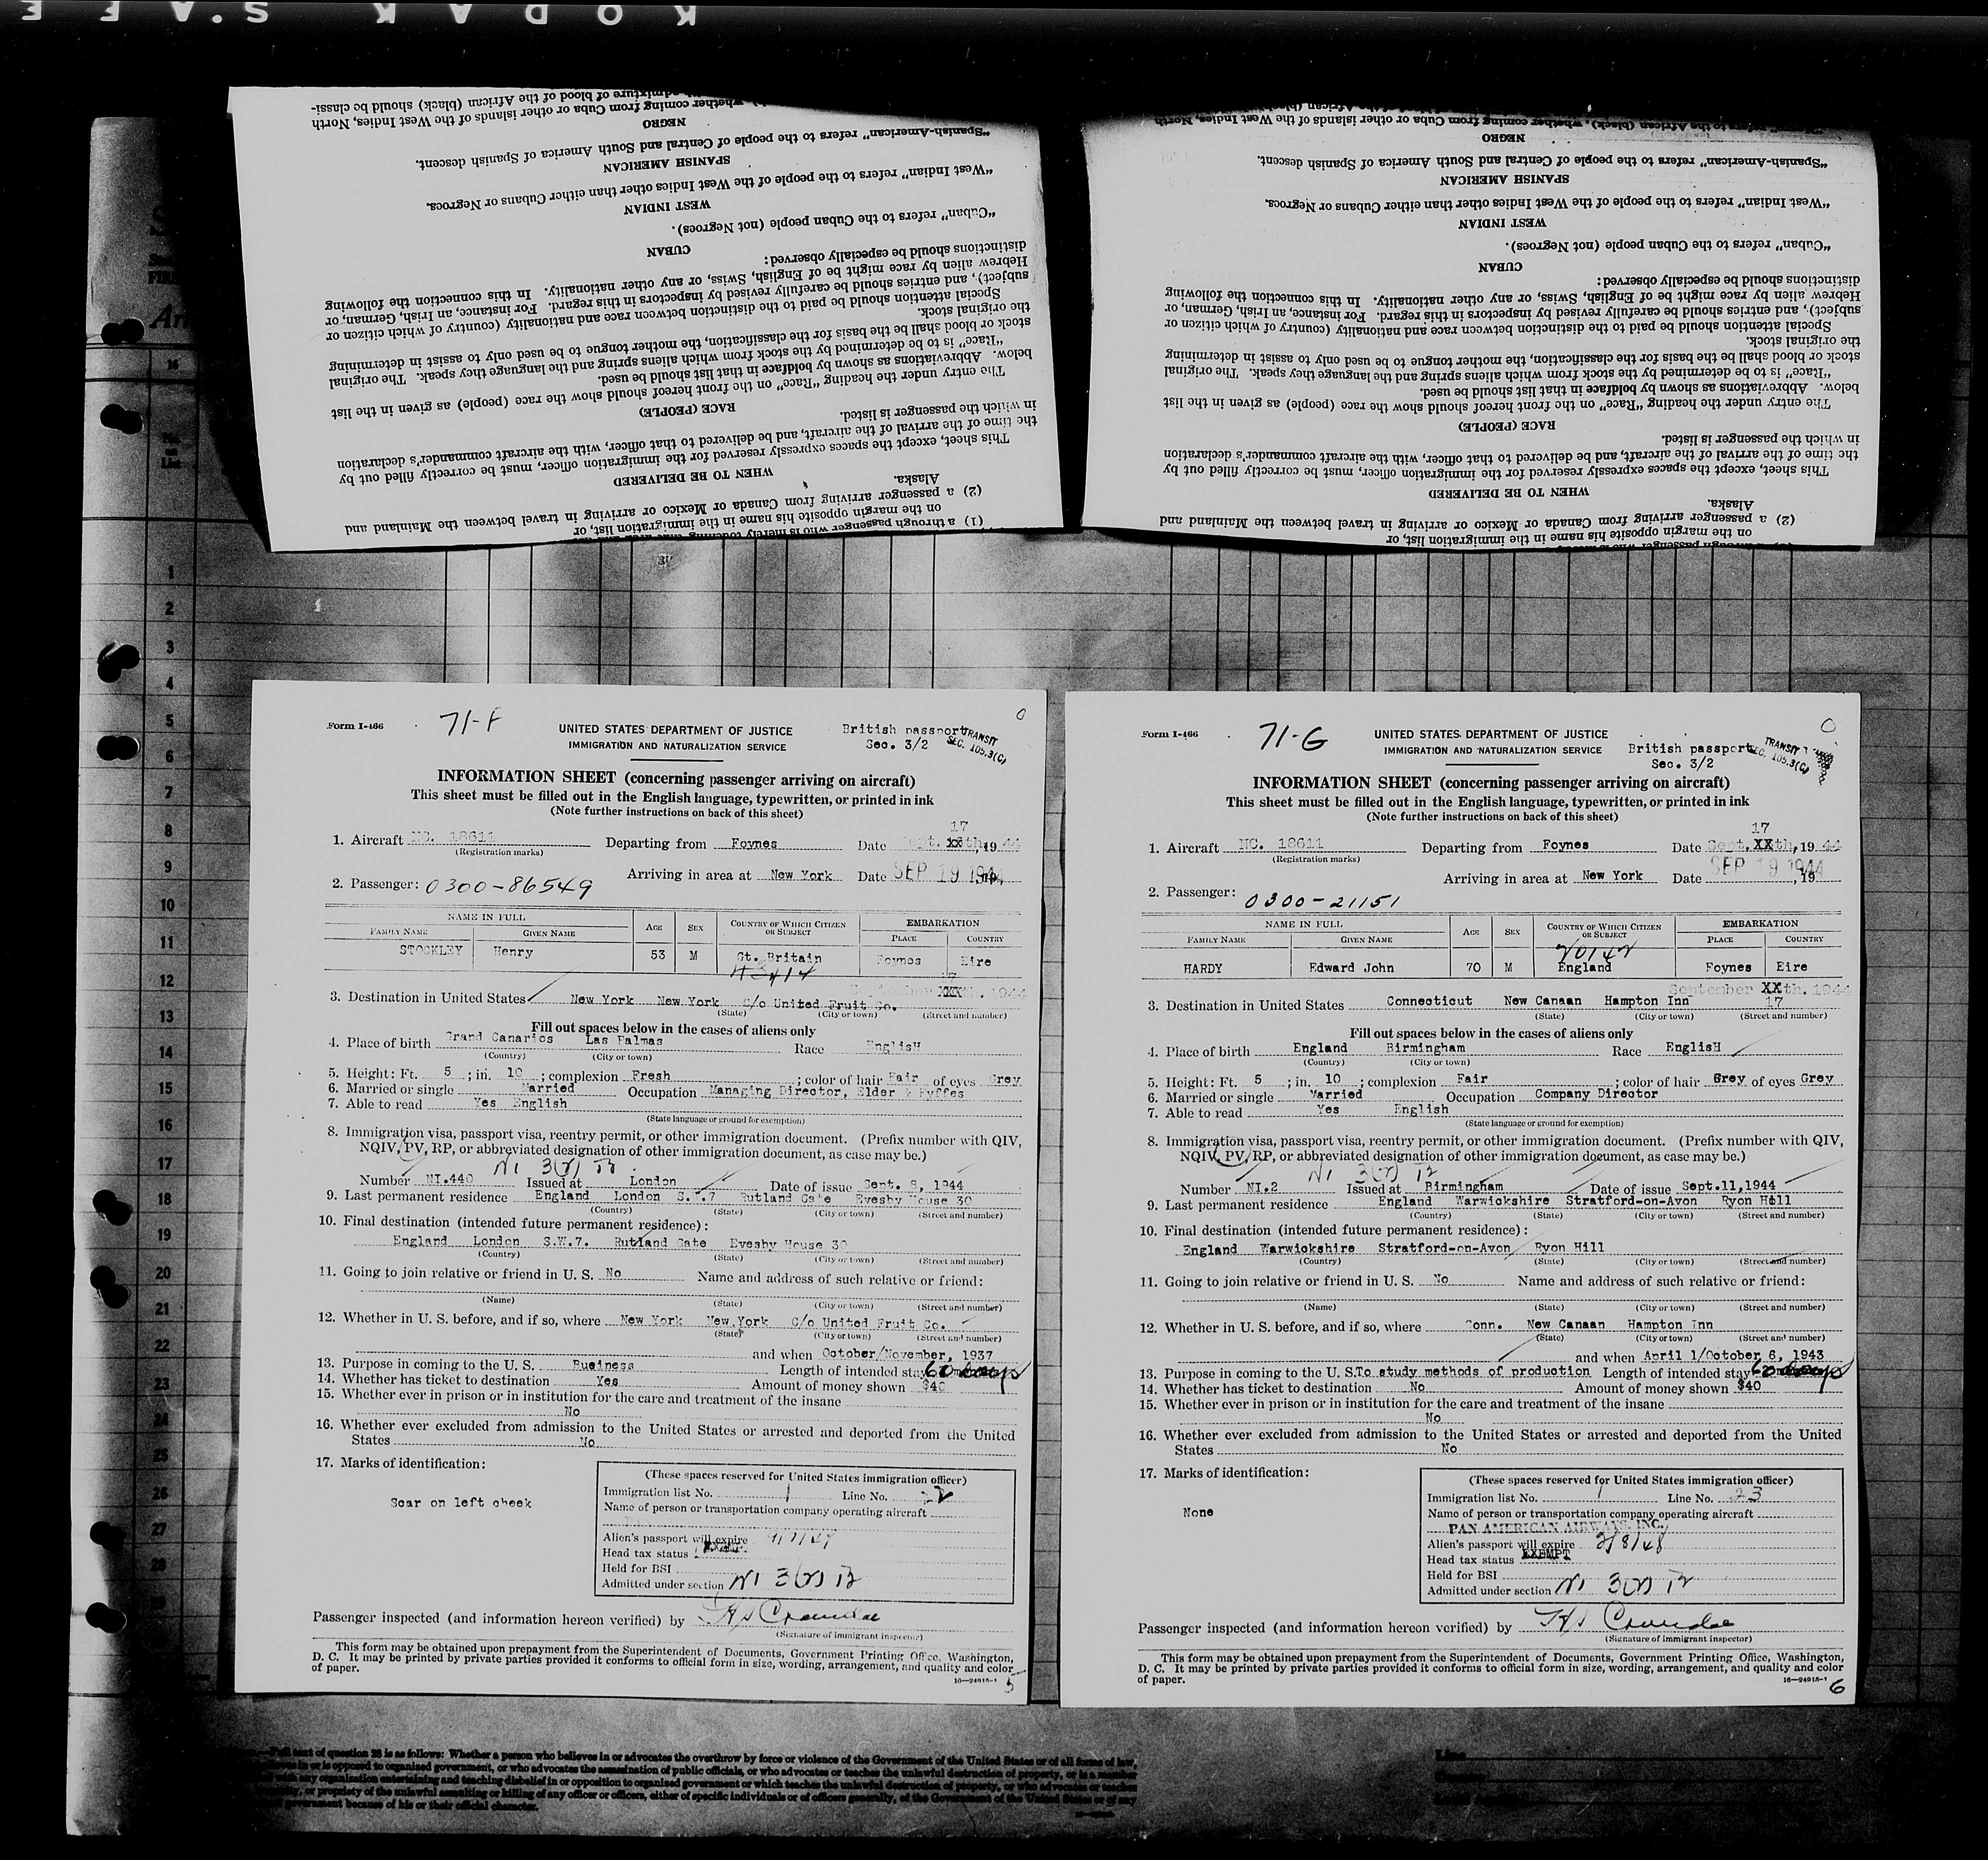 KODAK S.A.F.E
fied
admixture of blood of the African (black) should be classi-
whether coming from Cuba or other islands of the West Indies, North
NEGRO
"Spanish-American" refers to the people of Central and South America of Spanish descent.
SPANISH AMERICAN
"West Indian" refers to the people of the West Indies other than either Cubans or Negroes.
WEST INDIAN
"Cuban" refers to the Cuban people (not Negroes).
CUBAN
distinctions should be especially observed:
Hebrew alien by race might be of English, Swiss, or any other nationality. In this connection the following
subject), and entries should be carefully revised by inspectors in this regard. For instance, an Irish, German, or
Special attention should be paid to the distinction between race and nationality (country of which citizen or
the original stock.
stock or blood shall be the basis for the classification, the mother tongue to be used only to assist in determining
"Race" is to be determined by the stock from which aliens spring and the language they speak. The original
below. Abbreviations as shown by boldface in that list should be used.
The entry under the heading "Race" on the front hereof should show the race (people) as given in the list
RACE (PEOPLE)
in which the passenger is listed.
the time of the arrival of the aircraft, and be delivered to that officer, with the aircraft commander's declaration
This sheet, except the spaces expressly reserved for the immigration officer, must be correctly filled out by
WHEN TO BE DELIVERED
Alaska.
(2) a passenger arriving from Canada or Mexico or arriving in travel between the Mainland and
on the margin opposite his name in the immigration list, or
(1) a through passenger who is merely touching
whether coming from Cuba or other islands of the West Indies, North
NEGRO
"Spanish-American" refers to the people of Central and South America of Spanish descent.
SPANISH AMERICAN
"West Indian" refers to the people of the West Indies other than either Cubans or Negroes.
WEST INDIAN
"Cuban" refers to the Cuban people (not Negroes).
CUBAN
distinctions should be especially observed:
Hebrew alien by race might be of English, Swiss, or any other nationality. In this connection the following
subject), and entries should be carefully revised by inspectors in this regard. For instance, an Irish, German, or
Special attention should be paid to the distinction between race and nationality (country of which citizen or
the original stock.
stock or blood shall be the basis for the classification, the mother tongue to be used only to assist in determining
"Race" is to be determined by the stock from which aliens spring and the language they speak. The original
below. Abbreviations as shown by boldface in that list should be used.
The entry under the heading "Race" on the front hereof should show the race (people) as given in the list
RACE (PEOPLE)
in which the passenger is listed.
the time of the arrival of the aircraft, and be delivered to that officer, with the aircraft commander's declaration
This sheet, except the spaces expressly reserved for the immigration officer, must be correctly filled out by
WHEN TO BE DELIVERED
Alaska.
(2) a passenger arriving from Canada or Mexico or arriving in travel between the Mainland and
on the margin opposite his name in the immigration list, or
1
2
3
4
5
6
7
8
9
10
11
12
13
14
15
16
17
18
19
20
21
22
23
24
25
26
27
28
Form I-466
71-F
UNITED STATES DEPARTMENT OF JUSTICE
IMMIGRATION AND NATURALIZATION SERVICE
British passport
Sec. 3/2
TRANSIT
SEC. 105.3(C)
0
INFORMATION SHEET (concerning passenger arriving on aircraft)
This sheet must be filled out in the English language, typewritten, or printed in ink
(Note further instructions on back of this sheet)
1. Aircraft NC. 18611 Departing from Foynes Date Sept. 17 XXth, 1944
(Registration marks)
Arriving in area at New York Date SEP 19 1944
2. Passenger: 0300-86549
NAME IN FULL AGE SEX COUNTRY OF WHICH CITIZEN OR SUBJECT EMBARKATION
FAMILY NAME GIVEN NAME PLACE COUNTRY
STOCKLEY Henry 53 M Gt. Britain Foynes Eire
September 17 XXth. 1944
3. Destination in United States New York New York C/o United Fruit Co.
(State) (City or town) (Street and number)
Fill out spaces below in the cases of aliens only
4. Place of birth Grand Canaries Las Palmas Race EnglisH
(Country) (City or town)
5. Height: Ft. 5; in. 10; complexion Fresh; color of hair Fair of eyes Grey
6. Married or single Married Occupation Managing Director, Elder & Fyffes
7. Able to read Yes English
(State language or ground for exemption)
8. Immigration visa, passport visa, reentry permit, or other immigration document. (Prefix number with QIV,
NQIV, PV, RP, or abbreviated designation of other immigration document, as case may be.)
NI 3(2) B
Number NI.440 Issued at London Date of issue Sept. 8, 1944
9. Last permanent residence England London S.W.7 Rutland Gate Evesby House 30
(Country) (State) (City or town) (Street and number)
10. Final destination (intended future permanent residence):
England London S.W.7. Rutland Gate Evesby House 30
(Country) (State) (City or town) (Street and number)
11. Going to join relative or friend in U. S. No Name and address of such relative or friend:
(Name) (State) (City or town) (Street and number)
12. Whether in U. S. before, and if so, where New York New York C/o United Fruit Co.
(State) (City or town) (Street and number)
and when October/November, 1937
13. Purpose in coming to the U. S. Business Length of intended stay 60 days
14. Whether has ticket to destination Yes Amount of money shown $40
15. Whether ever in prison or in institution for the care and treatment of the insane
No
16. Whether ever excluded from admission to the United States or arrested and deported from the United
States No
17. Marks of identification:
Scar on left cheek
(These spaces reserved for United States immigration officer)
Immigration list No. 1 Line No. 22
Name of person or transportation company operating aircraft
Alien's passport will expire
Head tax status EXEMPT
Held for BSI
Admitted under section NI 3(2) B
Passenger inspected (and information hereon verified) by
(Signature of immigrant inspector)
This form may be obtained upon prepayment from the Superintendent of Documents, Government Printing Office, Washington,
D. C. It may be printed by private parties provided it conforms to official form in size, wording, arrangement, and quality and color
of paper.
16—24915-1
5
Form I-466
71-G
UNITED STATES DEPARTMENT OF JUSTICE
IMMIGRATION AND NATURALIZATION SERVICE
British passport
Sec. 3/2
TRANSIT
SEC. 105.3(C)
0
INFORMATION SHEET (concerning passenger arriving on aircraft)
This sheet must be filled out in the English language, typewritten, or printed in ink
(Note further instructions on back of this sheet)
1. Aircraft NC. 18611 Departing from Foynes Date Sept. 17 XXth, 1944
(Registration marks)
Arriving in area at New York Date SEP 19 1944
2. Passenger: 0300-21151
NAME IN FULL AGE SEX COUNTRY OF WHICH CITIZEN OR SUBJECT EMBARKATION
FAMILY NAME GIVEN NAME PLACE COUNTRY
HARDY Edward John 70 M England Foynes Eire
September XXth. 1944
17
3. Destination in United States Connecticut New Canaan Hampton Inn
(State) (City or town) (Street and number)
Fill out spaces below in the cases of aliens only
4. Place of birth England Birmingham Race EnglisH
(Country) (City or town)
5. Height: Ft. 5; in. 10; complexion Fair; color of hair Grey of eyes Grey
6. Married or single Married Occupation Company Director
7. Able to read Yes English
(State language or ground for exemption)
8. Immigration visa, passport visa, reentry permit, or other immigration document. (Prefix number with QIV,
NQIV, PV, RP, or abbreviated designation of other immigration document, as case may be.)
NI 3(2) B
Number NI.2 Issued at Birmingham Date of issue Sept.11,1944
9. Last permanent residence England Warwickshire Stratford-on-Avon Ryon Hill
(Country) (State) (City or town) (Street and number)
10. Final destination (intended future permanent residence):
England Warwickshire Stratford-on-Avon Ryon Hill
(Country) (State) (City or town) (Street and number)
11. Going to join relative or friend in U. S. No Name and address of such relative or friend:
(Name) (State) (City or town) (Street and number)
12. Whether in U. S. before, and if so, where Conn. New Canaan Hampton Inn
(State) (City or town) (Street and number)
and when April 1/October 6, 1943
13. Purpose in coming to the U. S. To study methods of production Length of intended stay 60 days
14. Whether has ticket to destination No Amount of money shown $40
15. Whether ever in prison or in institution for the care and treatment of the insane
No
16. Whether ever excluded from admission to the United States or arrested and deported from the United
States No
17. Marks of identification:
None
(These spaces reserved for United States immigration officer)
Immigration list No. 1 Line No. 23
Name of person or transportation company operating aircraft
PAN AMERICAN AIRWAYS, INC.
Alien's passport will expire 2/8/48
Head tax status EXEMPT
Held for BSI
Admitted under section NI 3(2) B
Passenger inspected (and information hereon verified) by
(Signature of immigrant inspector)
This form may be obtained upon prepayment from the Superintendent of Documents, Government Printing Office, Washington,
D. C. It may be printed by private parties provided it conforms to official form in size, wording, arrangement, and quality and color
of paper.
16—24915-1
6
text of question 28 is as follows: Whether a person who believes in or advocates the overthrow by force or violence of the Government of the United States or of all forms of law,
in or is opposed to organized government, or who advocates the assassination of public officials, or who advocates or teaches the unlawful destruction of property, or is a member
any organization entertaining and teaching disbelief in or opposition to organized government or which teaches the unlawful destruction of property, or who advocates or teaches
or propriety of the unlawful assaulting or killing of any officer or officers, either of specific individuals or of officers generally, of the Government of the United States or of any
government because of his or their official character.